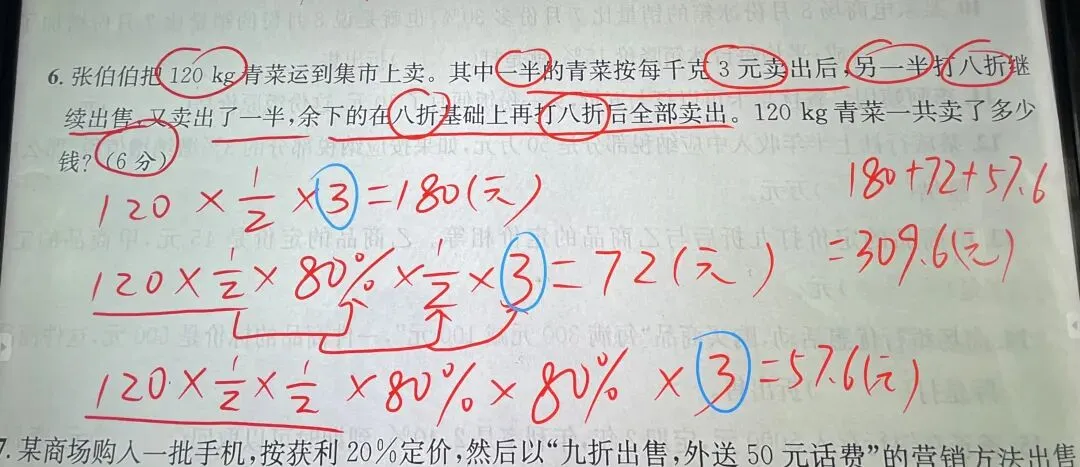 6. 张伯伯把 120 kg 青菜运到集市上卖。其中一半的青菜按每千克 3 元卖出后,另一半打八折继
续出售,又卖出了一半,余下的在八折基础上再打八折后全部卖出。120 kg 青菜一共卖了多少
钱?(6 分)
120 × 1/2 × 3 = 180(元)
180+72+57.6
120 × 1/2 × 80% × 1/2 × 3 = 72(元)
=309.6(元)
120 × 1/2 × 1/2 × 80% × 80% × 3 = 57.6(元)
7. 某商场购入一批手机,按获利 20%定价,然后以“九折出售,外送 50 元话费”的营销方法出售